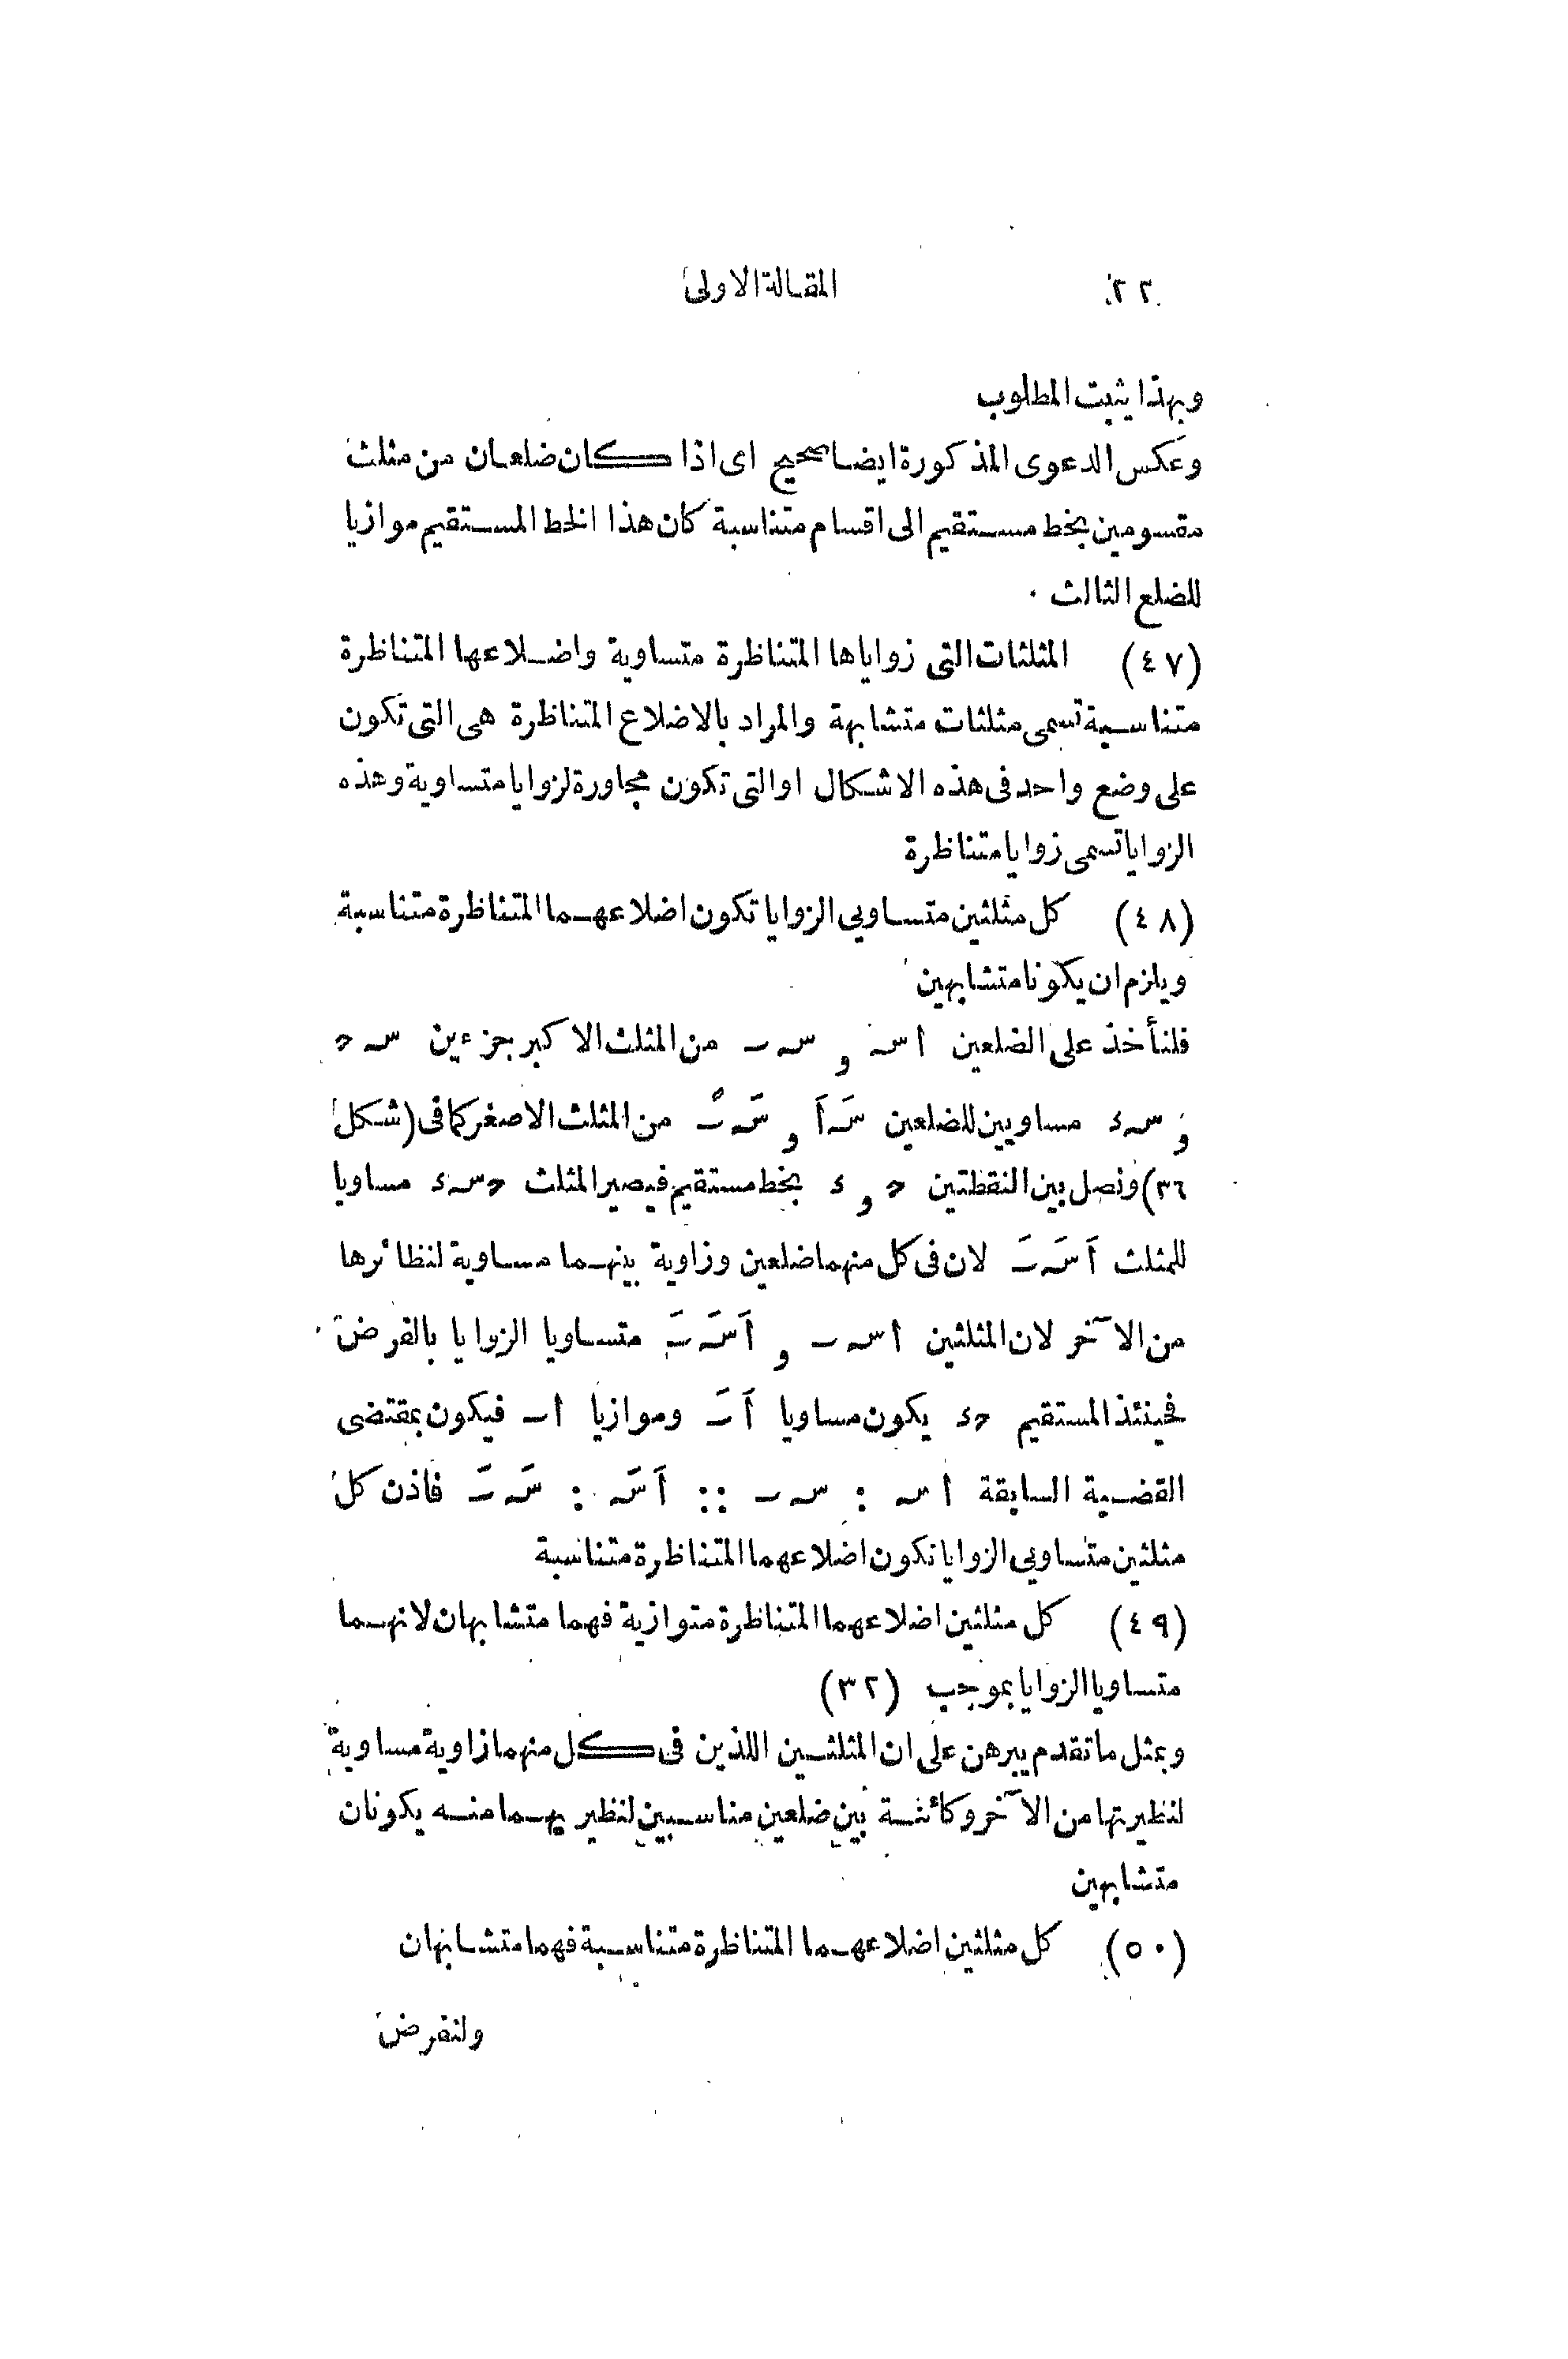 ٢٢ المقالة الاولى
وبهذا يثبت المطلوب
وعكس الدعوى المذكورة ايضا صحيح اى اذا كان ضلعان من مثلث
مقسومين بخط مستقيم الى اقسام متناسبة كان هذا الخط المستقيم موازيا
للضلع الثالث
(٤٧) المثلثات التى زواياها المتناظرة متساوية واضلاعها المتناظرة
متناسبة تسمى مثلثات متشابهة والمراد بالاضلاع المتناظرة هى التى تكون
على وضع واحد فى هذه الاشكال او التى تكون مجاورة لزوايا متساوية وهذه
الزوايا تسمى زوايا متناظرة
(٤٨) كل مثلثين متساويى الزوايا تكون اضلاعهما المتناظرة متناسبة
ويلزم ان يكونا متشابهين
فلنأخذ على الضلعين اسـ و سـ ـ من المثلث الاكبر جزءين سـ ح
و سـ ء مساويين للضلعين سَـ اَ و سَـ ـَ من المثلث الاصغر كما فى (شكل
٣٦) ونصل بين النقطتين ح و ء بخط مستقيم فيصير المثلث ح سـ ء مساويا
للمثلث اَ سَـ ـَ لان فى كل منهما ضلعين وزاوية بينهما مساوية لنظائرها
من الآخر لان المثلثين ا سـ ـ و اَ سَـ ـَ متساويا الزوايا بالفرض
فحينئذ المستقيم ح ء يكون مساويا اَ ـَ وموازيا ا ـ فيكون بمقتضى
القضية السابقة ا سـ : سـ ـ :: اَ سَـ : سَـ ـَ فاذن كل
مثلثين متساويى الزوايا تكون اضلاعهما المتناظرة متناسبة
(٤٩) كل مثلثين اضلاعهما المتناظرة متوازية فهما متشابهان لانهما
متساويا الزوايا بموجب (٣٢)
وبمثل ما تقدم يبرهن على ان المثلثين اللذين فى كل منهما زاوية مساوية
لنظيرتها من الآخر وكائنة بين ضلعين مناسبين لنظيريهما منه يكونان
متشابهين
(٥٠) كل مثلثين اضلاعهما المتناظرة متناسبة فهما متشابهان
ولنفرض